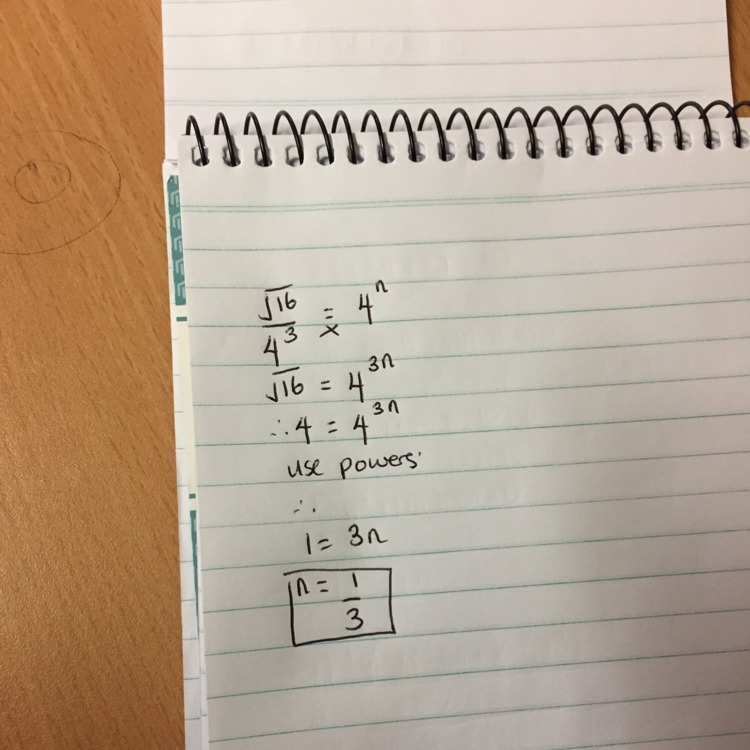 √16/4³ = 4ⁿ
×
√16 = 4³ⁿ
∴ 4 = 4³ⁿ
use powers
∴
1 = 3n
n = 1/3